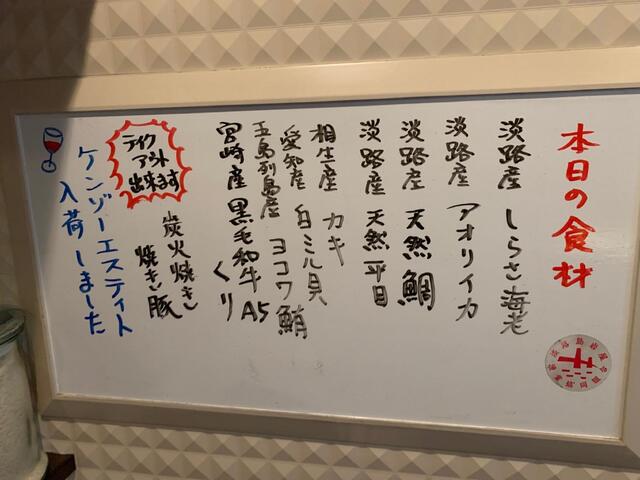 本日の食材
淡路産 しらさ海老
淡路産 アオリイカ
淡路産 天然鯛
淡路産 天然平目
相生産 カキ
愛知産 白ミル貝
五島列島産 ヨコワ鮪
宮崎産 黒毛和牛A5
くり
テイク
アウト
出来ます
炭火焼き
焼き豚
ケンゾーエステイト
入荷しました